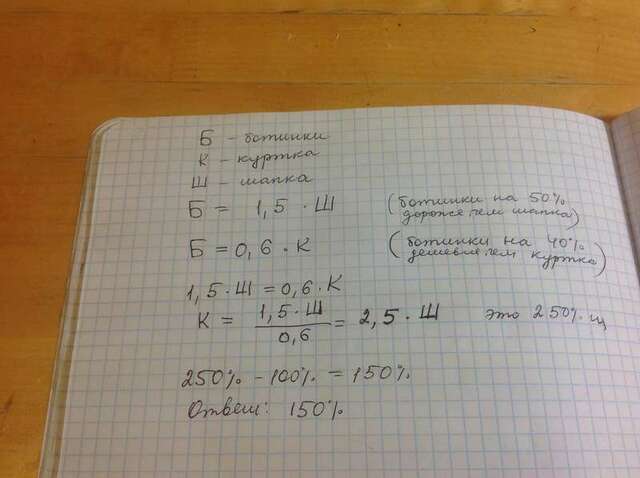 Б - ботинки
К - куртка
Ш - шапка
Б = 1,5 · Ш (ботинки на 50% дороже, чем шапка)
Б = 0,6 · К (ботинки на 40% дешевле, чем куртка)
1,5 · Ш = 0,6 · К
К = 1,5 · Ш / 0,6 = 2,5 · Ш это 250%
250% - 100% = 150%
Ответ: 150%